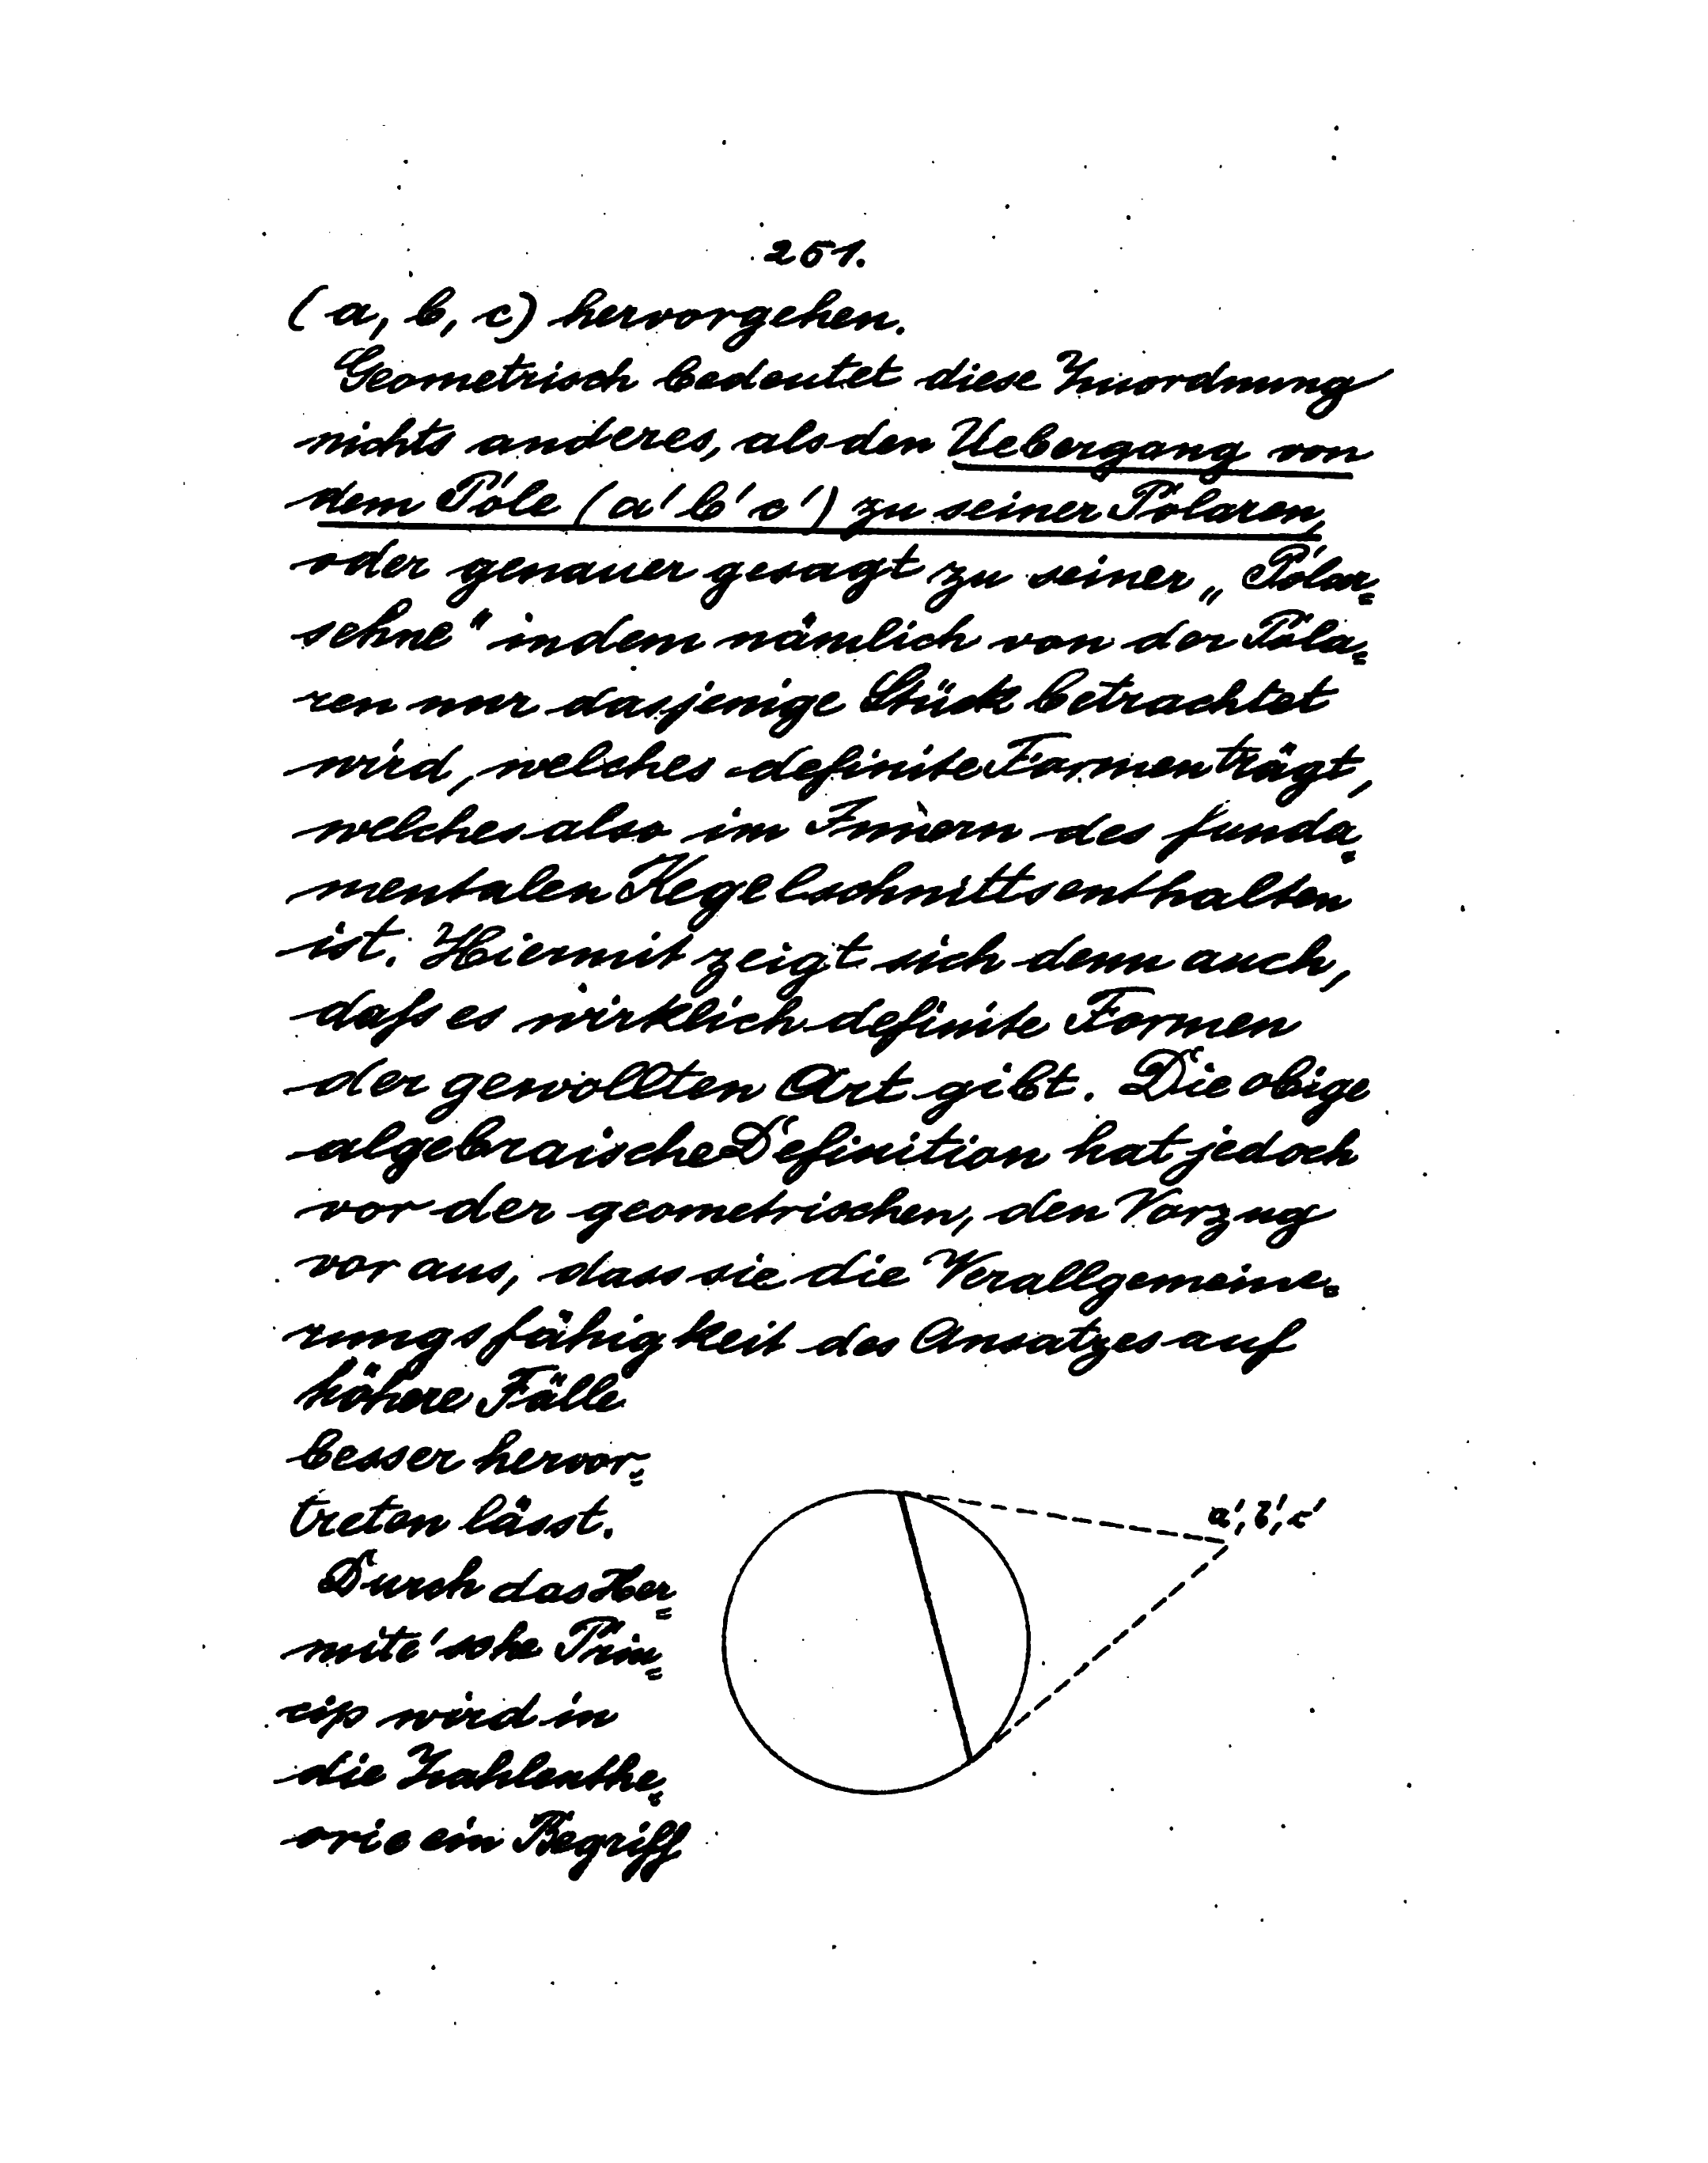 251.
(a, b, c) hervorgehen.
Geometrisch bedeutet diese Zuordnung
nichts anderes, als den Uebergang von
dem Pole (a' b' c') zu seiner Polaren,
oder genauer gesagt zu seiner „Polar=
sehne" indem nämlich von der Pola=
ren nur dasjenige Stück betrachtet
wird, welches definite Formen trägt,
welches also im Innern des funda=
mentalen Kegelschnitts enthalten
ist. Hiermit zeigt sich denn auch,
dafs es wirklich definite Formen
der gewollten Art gibt. Die obige
algebraische Definition hat jedoch
vor der geometrischen, den Vorzug
voraus, dass sie die Verallgemeine=
rungsfähigkeit des Ansatzes auf
höhere Fälle
besser hervor=
treten lässt.
a', b', c'
Durch das Her=
mite'sche Prin=
cip wird in
die Zahlenthe=
orie ein Begriff